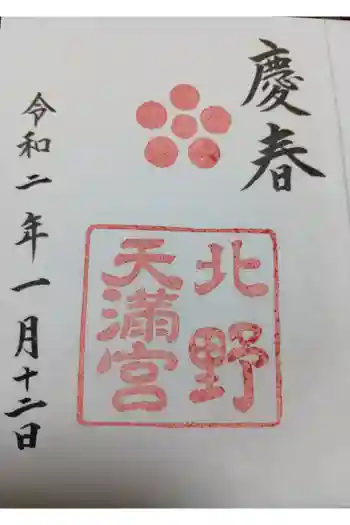 慶春
北野
天満宮
令和二年一月十二日